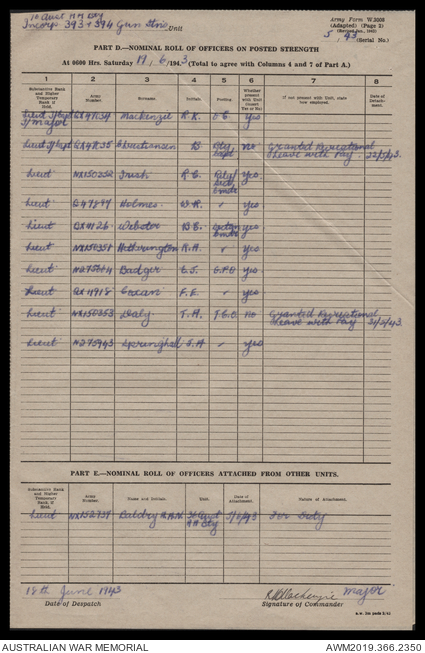 16 Aust H.A. Bty
Incorp 393 + 394 Gun Stns Unit
Army Form W.3008
(Adapted) (Page 2)
(Revised Dec. 1942)
5/43 (Serial No.)
PART D.—NOMINAL ROLL OF OFFICERS ON POSTED STRENGTH
At 0600 Hrs. Saturday 19/6/1943 (Total to agree with Columns 4 and 7 of Part A.)
1 2 3 4 5 6 7 8
Substantive Rank and Higher Temporary Rank if Held. Army Number. Surname. Initials. Posting. Whether present with Unit (insert Yes or No) If not present with Unit, state how employed. Date of Detachment.
Lieut T/Capt T/Major MacKenzie R.K. O.C. Yes
Lieut T/Capt Christiansen B Bty Capt No Granted Recreational Leave with Pay. 22/5/43.
Lieut NX150252 Irish R.C. Yes
Lieut Holmes W.R. " Yes
Lieut Webster Yes
Lieut Hetherington R.A. " Yes
Lieut Badger E.J. G.P.O Yes
Lieut F.E. " Yes
Lieut NX150353 Daly T.A. No Granted Recreational Leave with Pay 31/5/43.
Lieut N275943 Springhall J.A " Yes
PART E.—NOMINAL ROLL OF OFFICERS ATTACHED FROM OTHER UNITS.
Substantive Rank and Higher Temporary Rank if Held. Army Number. Names and Initials. Unit. Date of Attachment. Nature of Attachment.
Lieut NX152739 Baldry For Duty
18th June 1943
Date of Despatch
RKMackenzie Major
Signature of Commander
AUSTRALIAN WAR MEMORIAL
AWM2019.366.2350